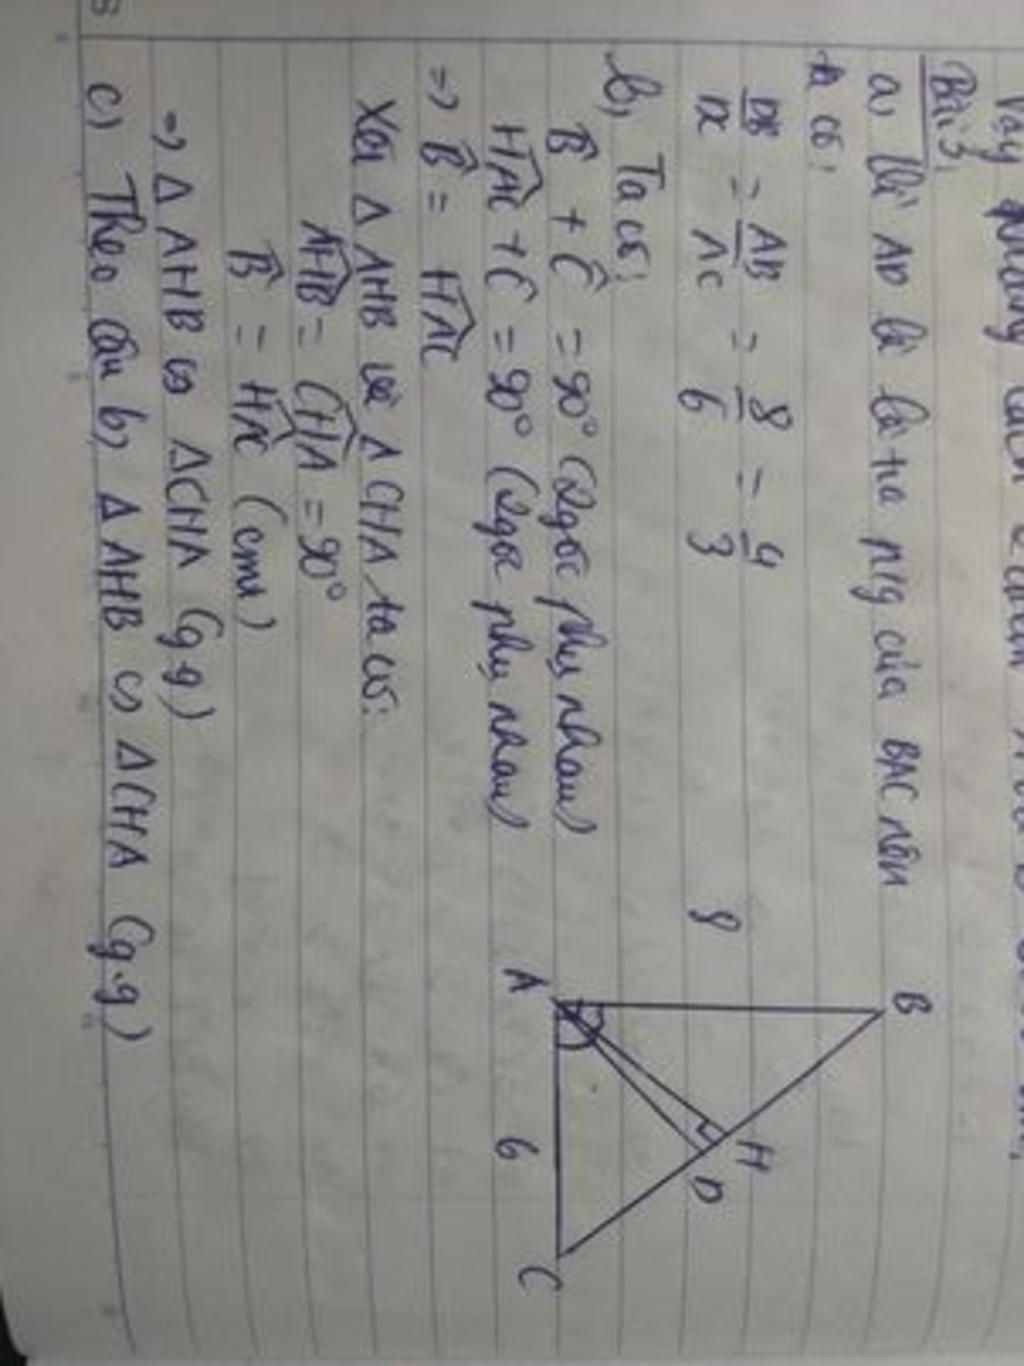 Vậy
Bài 3:
a, Vì AD là là tia p/g của BAC nên
ta có:
DB/DC = AB/AC = 8/6 = 4/3
b, Ta có:
B̂ + Ĉ = 90° (2 góc phụ nhau)
HAC + Ĉ = 90° (2 góc phụ nhau)
=> B̂ = HAC
Xét Δ AHB và Δ CHA ta có:
AHB = CHA = 90°
B̂ = HAC (cmt)
=> Δ AHB ∽ ΔCHA (g.g)
c) Theo câu b, Δ AHB ∽ ΔCHA (g.g)
B
8
H
D
A
6
C